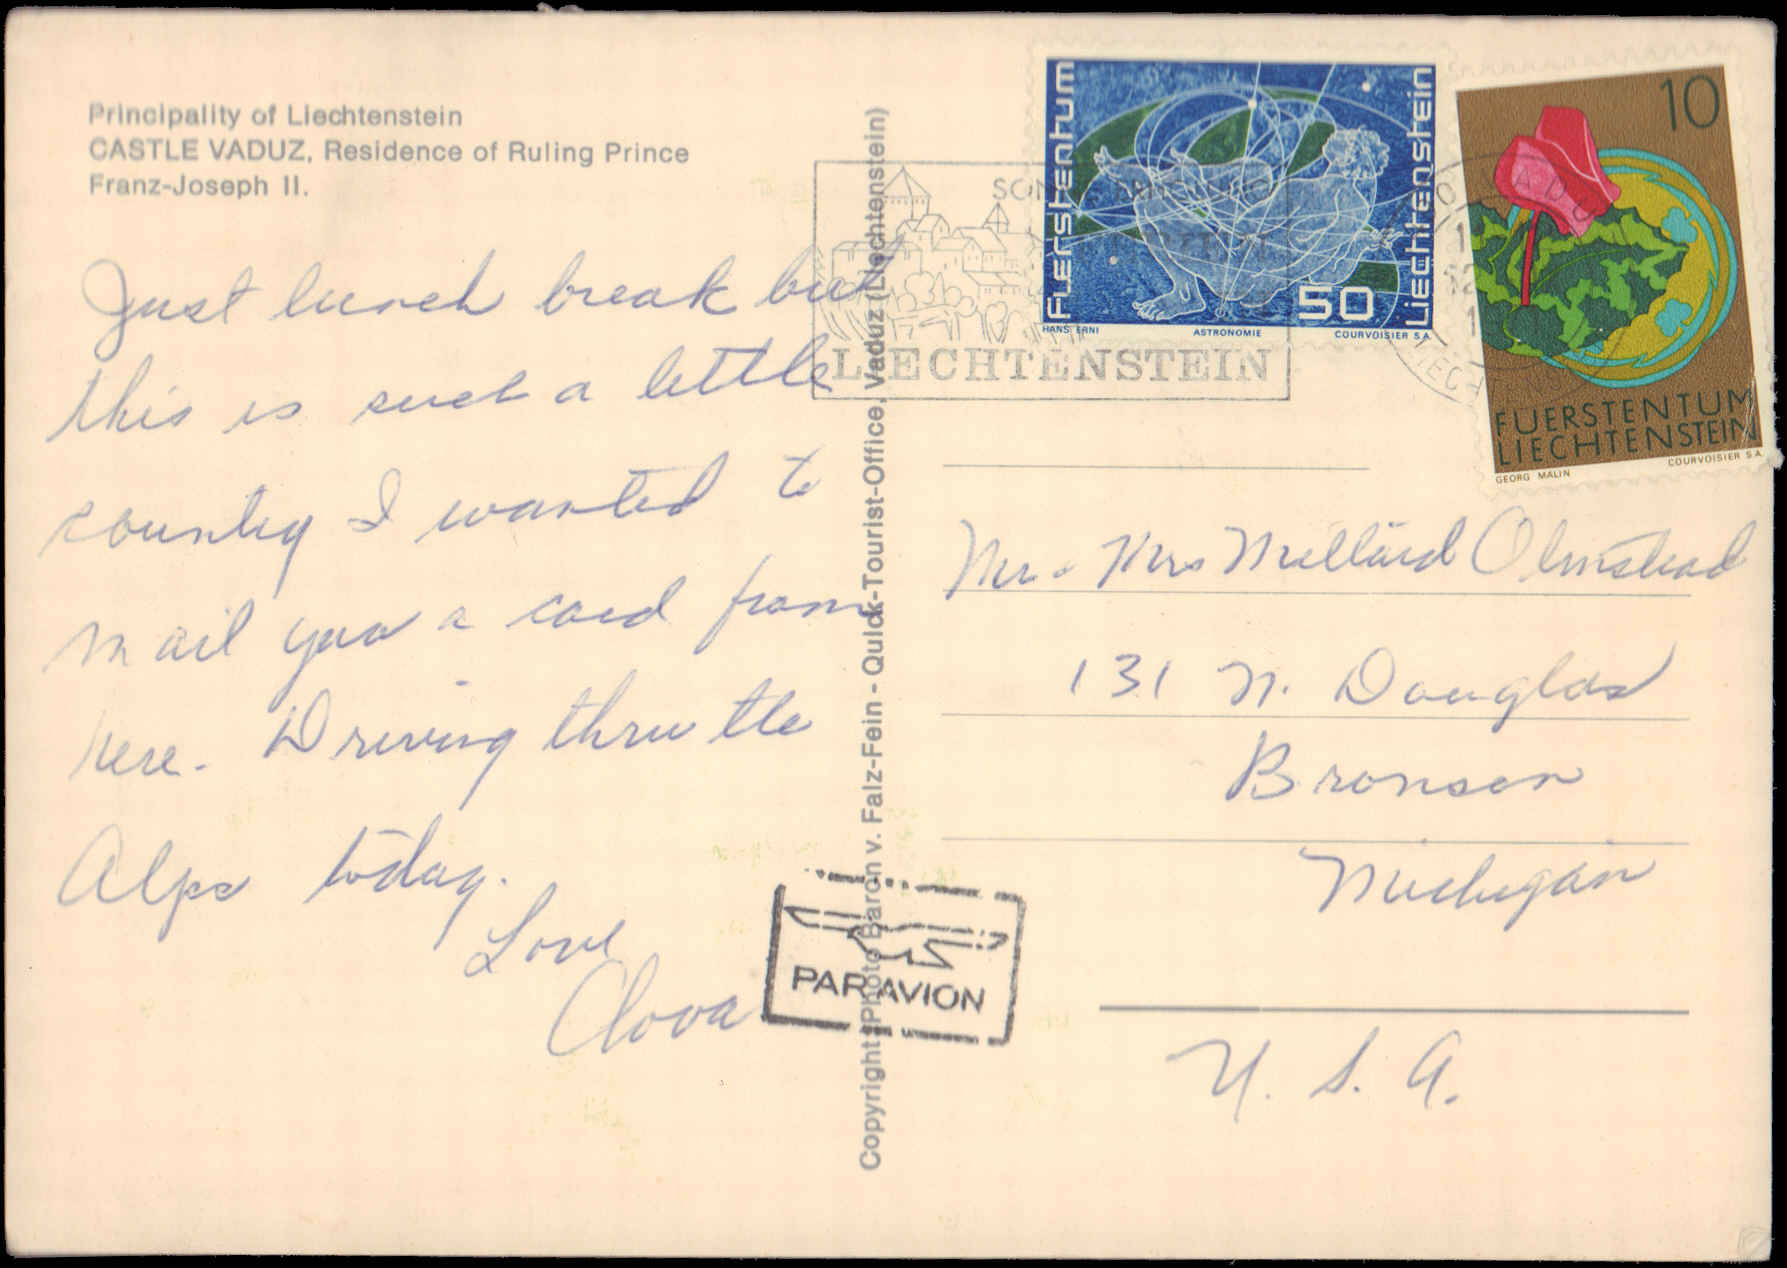 Principality of Liechtenstein
CASTLE VADUZ, Residence of Ruling Prince
Franz-Joseph II.
Just lunch break but
this is such a little
country I wanted to
mail you a card from
here. Driving thru the
Alps today.
Love
Clova
Copyright Photo Baron v. Falz-Fein - Quick-Tourist-Office, Vaduz (Liechtenstein)
LIECHTENSTEIN
Fürstentum
Liechtenstein
50
HANS ERNI
ASTRONOMIE
COURVOISIER S.A.
10
FUERSTENTUM
LIECHTENSTEIN
GEORG MALIN
COURVOISIER S.A.
Mr. Mrs Millard Olmstead
131 N. Douglas
Bronson
Michigan
U. S. A.
PAR AVION